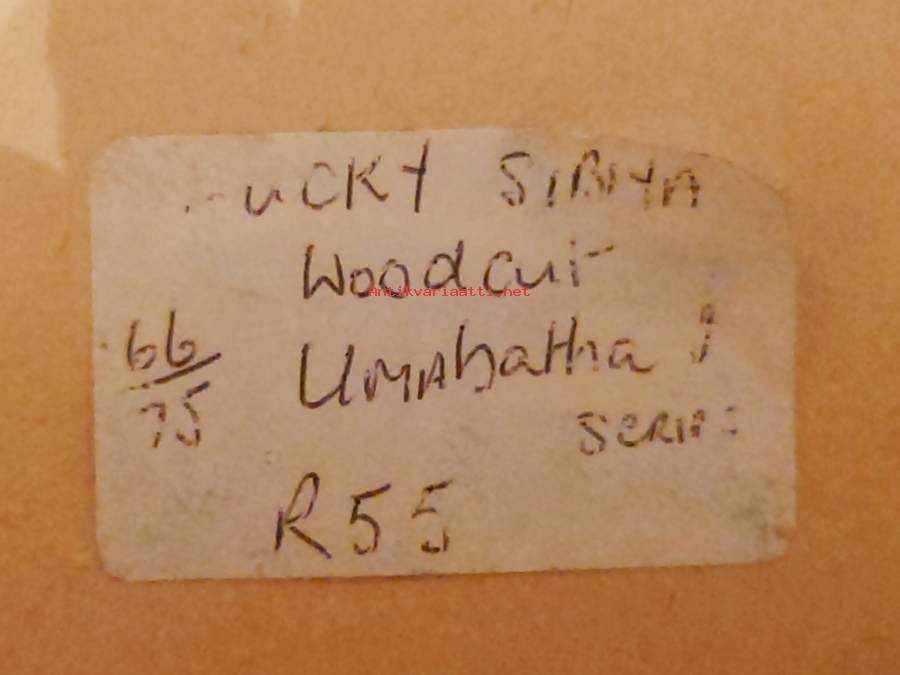 LUCKY SIBIYA
Woodcut
Antikvariaatti.net
66/75 Umabatha
SERIES
R55